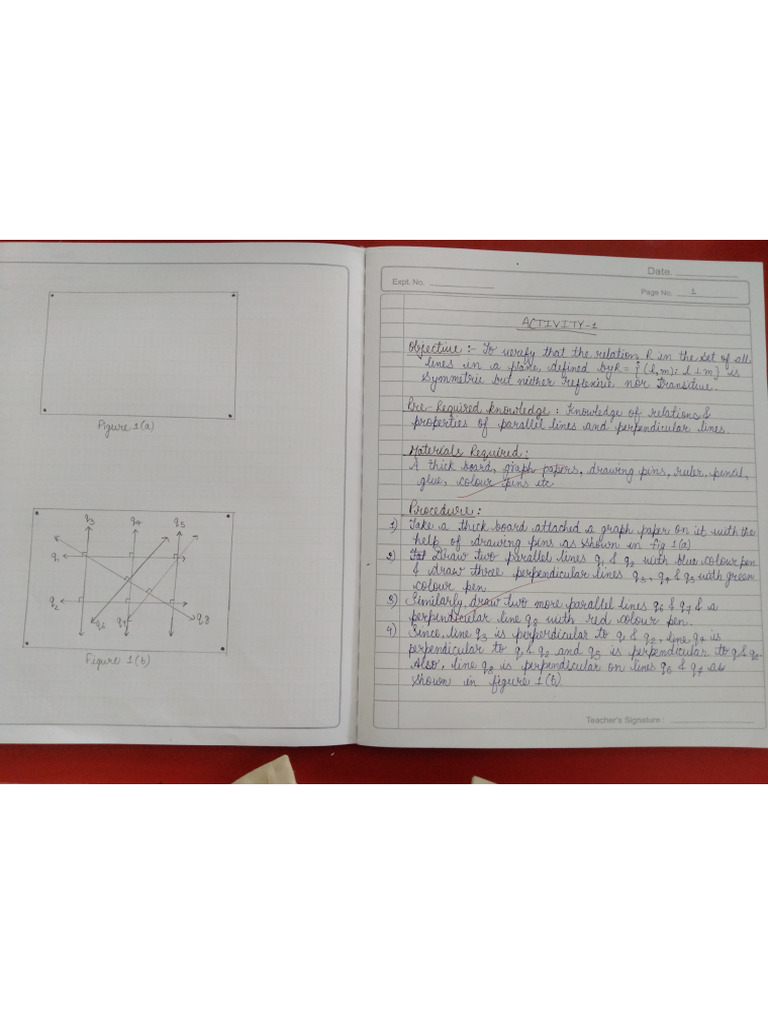 Figure 1(a)
q3 q4 q5
q1
q2
q6 q7 q8
Figure 1(b)
Date.
Expt. No.
Page No. 1
ACTIVITY-1
Objective :- To verify that the relation R in the set of all
lines in a plane, defined by R = {(l, m): l ⊥ m} is
symmetric but neither reflexive nor Transitive.
Pre-Required knowledge : Knowledge of relations &
properties of parallel lines and perpendicular lines.
Materials Required:
A thick board, graph papers, drawing pins, ruler, pencil,
glue, colour pens etc
Procedure :
1) Take a thick board attached a graph paper on it with the
help of drawing pins as shown in fig 1(a)
2) Draw two parallel lines q1 & q2 with blue colour pen
& draw three perpendicular lines q3, q4 & q5 with green
colour pen
3) Similarly, draw two more parallel lines q6 & q7 & a
perpendicular line q8 with red colour pen.
4) Since, line q3 is perpendicular to q1 & q2, line q4 is
perpendicular to q1 & q2 and q5 is perpendicular to q1 & q2.
Also, line q8 is perpendicular on lines q6 & q7 as
shown in figure 1(b)
Teacher's Signature :